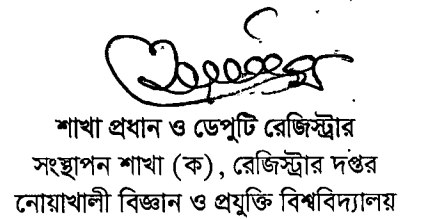 শাখা প্রধান ও ডেপুটি রেজিস্ট্রার
সংস্থাপন শাখা (ক), রেজিস্ট্রার দপ্তর
নোয়াখালী বিজ্ঞান ও প্রযুক্তি বিশ্ববিদ্যালয়